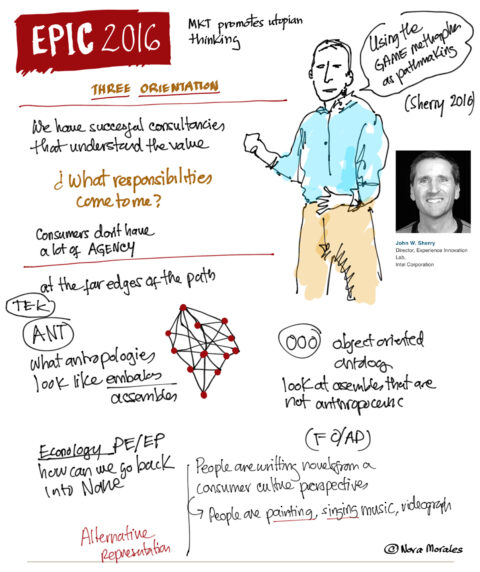 EPIC 2016
MKT promotes utopian
thinking
Using the
GAME methapher
as pathmaking
(Sherry 2016)
THREE ORIENTATION
We have succesful consultancies
that understand the value
¿What responsibilities
come to me?
Consumers don't have
a lot of AGENCY
at the far edges of the path
John W. Sherry
Director, Experience Innovation
Lab,
Intel Corporation
TEK
ANT
what antropologies
look like embales
assembles
OOO object oriented
ontology
look at assembles that are
not anthropocentric
Econology PE/EP
how can we go back
into
(F C/AP)
People are writting novels from a
consumer culture perspectives
People are painting, singing music, videograph
Alternative
Representation
@Nora Morales